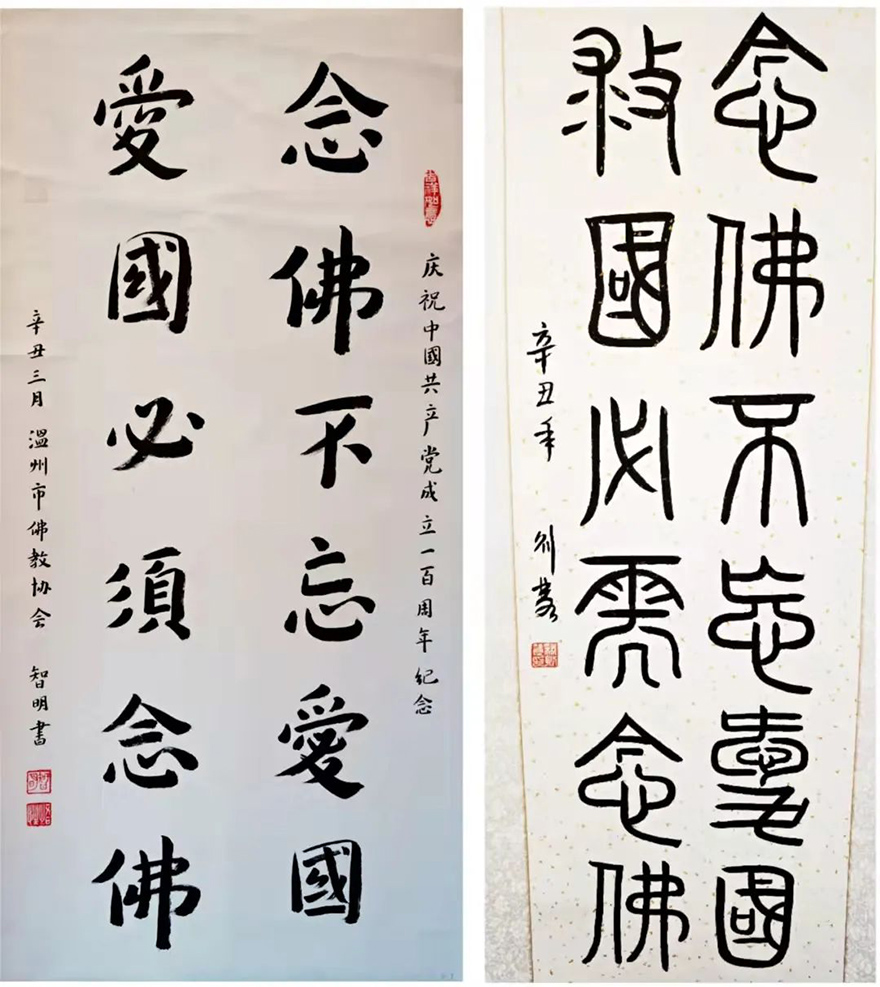 庆祝中國共产党成立一百周年纪念
念佛不忘愛國
愛國必須念佛
辛丑三月 温州市佛教协会 智明書
念佛不忘愛國
救國必需念佛
辛丑年